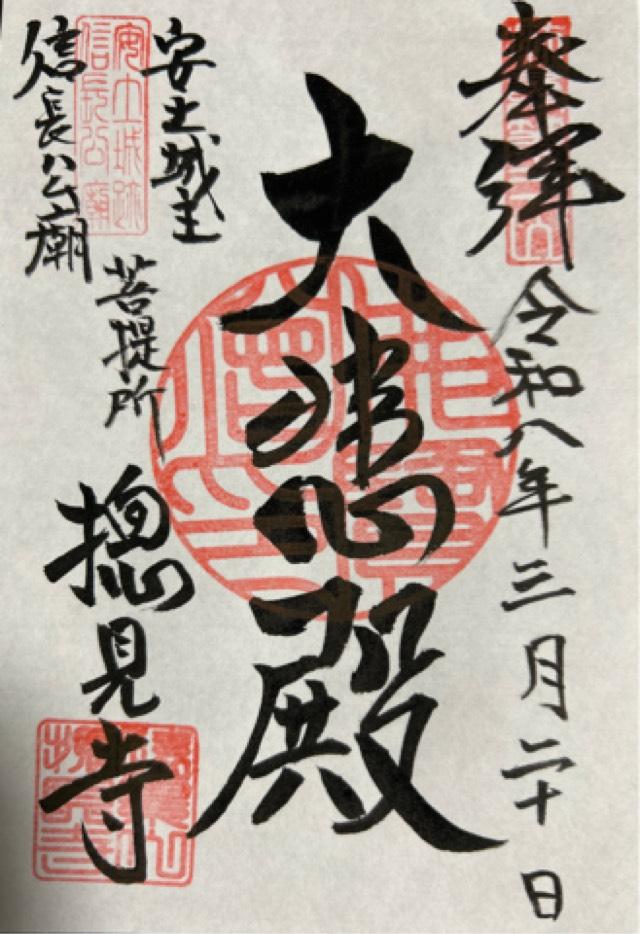 奉拝
令和八年三月二十日
大悲殿
安土城主
信長公廟
菩提所
摠見寺
安土城跡
信長公廟